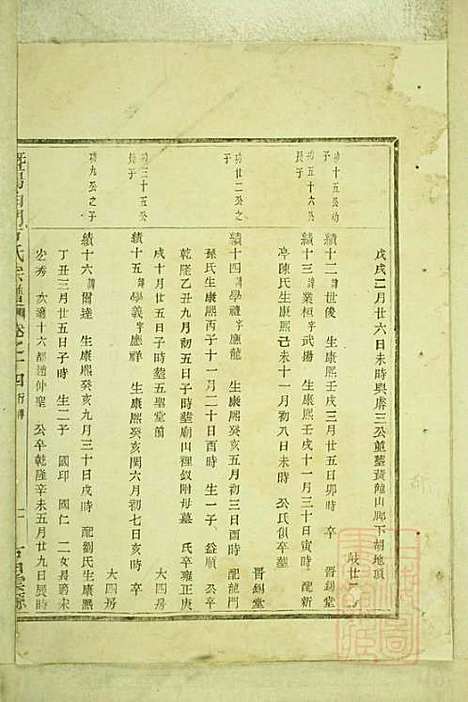 戊戌二月廿六日未時與房三公董墓黃館山脚下胡地頂
歧廿二房
功十五公幼子
績十二諱世俊 生康熙壬戌三月廿五日卯時 卒
晋錫堂
功五十六公長子
績十三諱業桓字武揚 生康熙壬戌十一月三十日寅時 配新
亭陳氏生康熙己未十一月初八日未時 公氏俱卒
晋錫堂
功廿二公之子
績十四諱學禮字應龍 生康熙癸亥五月初三日酉時 配龍門
孫氏生康熙丙子十一月二十日酉時 生一子 益順 公卒
乾隆乙丑九月初五日子時塟廟山裡釵附母墓 氏卒雍正庚
戌十月廿五日子時塟五聖堂前
大四房
功三十五公幼子
績十五諱學義字應祥 生康熙癸亥閏六月初七日亥時 卒
大四房
功九公之子
績十六諱爾達 生康熙癸亥九月三十日戌時 配劉氏生康熙
丁丑三月廿五日子時 生二子 國印 國仁 二女長適未
宏秀 次適十六都趙仲聖 公卒乾隆辛未五月廿九日辰時
暨陽 氏宗譜 卷之一四 行傳